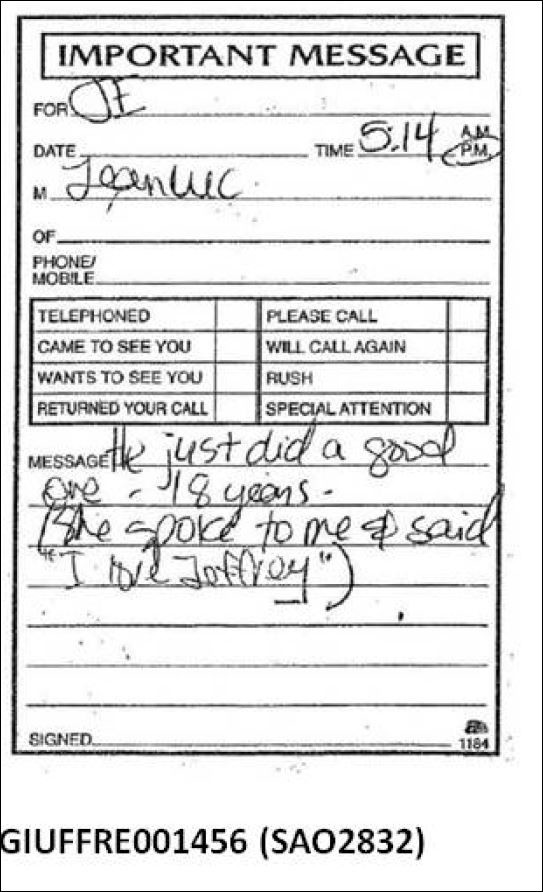 IMPORTANT MESSAGE
FOR JE
DATE TIME 5:14 A.M.
P.M.
M Jean Luc
OF
PHONE/
MOBILE
TELEPHONED PLEASE CALL
CAME TO SEE YOU WILL CALL AGAIN
WANTS TO SEE YOU RUSH
RETURNED YOUR CALL SPECIAL ATTENTION
MESSAGE He just did a good
one - 18 years -
(She spoke to me & said
"I love Jeffrey")
SIGNED
1184
GIUFFRE001456 (SAO2832)